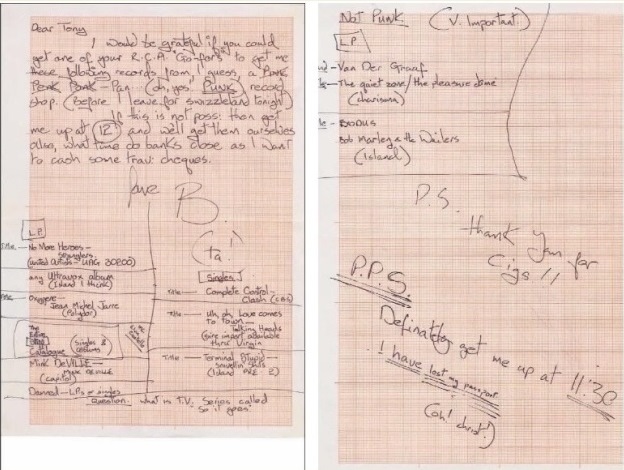 Dear Tony
I would be grateful if you could
get one of your R.C.A. Go-fors to get me
these following records from, I guess, a Ponk
Ponk Ponk - Pan - (oh, yes, PUNK) record
shop. (before I leave for swizzleland tonight)
If this is not poss: then get
me up at 12 and we'll get them ourselves
also, what time do banks close as I want
to cash some trav: cheques.
love B.
(ta!)
L.P.
Title - No More Heroes -
Stranglers
(United Artists - UAG 30200)
any Ultravox album
(Island I think)
Oxygene
Jean Michel Jarre
(Polydor)
The
Entire
Catalogue
(Singles & albums)
Mink DeVille -
Mink DeVille
(capitol)
Damned - L.Ps or singles
Singles
Title - Complete Control -
Clash (CBS)
Title - Uh, oh, Love comes
To Town -
Talking Heads
(sire import available
thru' Virgin
Title - Terminal Stupid
Snivelling Shits
(Island)
Question: what is T.V. Series called
'So it goes'
Not Punk. (V. Important)
L.P.
- Van Der Graaf
- The quiet zone / the pleasure dome
(charisma)
- EXODUS
Bob Marley & the Wailers
(Island)
P.S.
thank you for
cigs !!
P.P.S.
Definately get me up at 11:30
I have lost my passport
(oh! christ!)